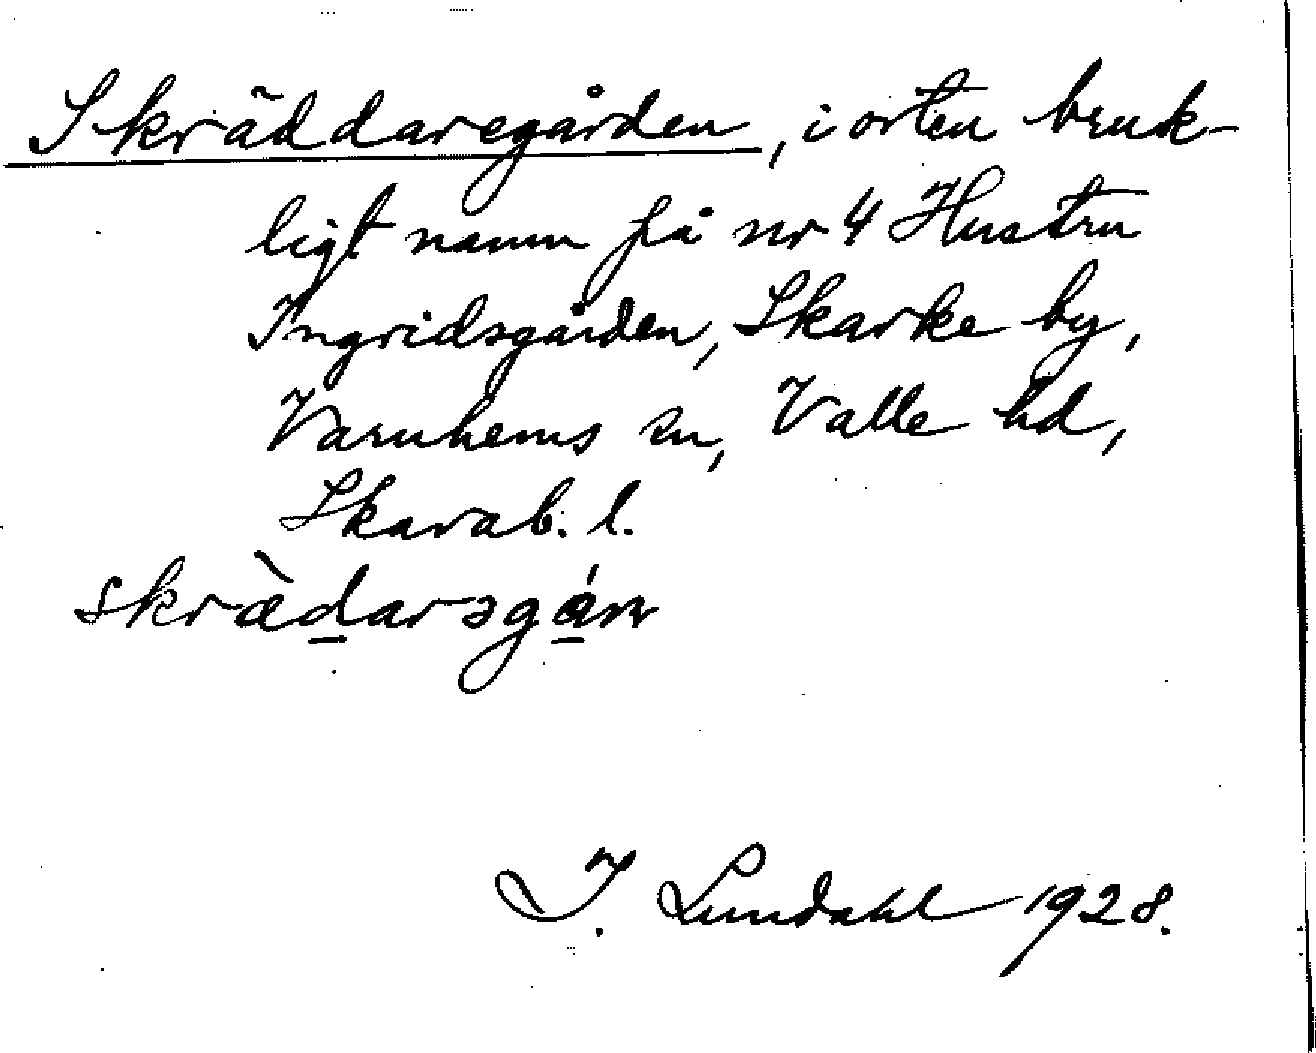 Skräddaregården, i orten bruk-
ligt namn på nr 4 Hustru
Ingridsgården, Skarke by,
Varnhems sn, Valle hd,
Skarab. l.
skræ̀d̲arəgá̲ɳ
I. Lundahl 1928.